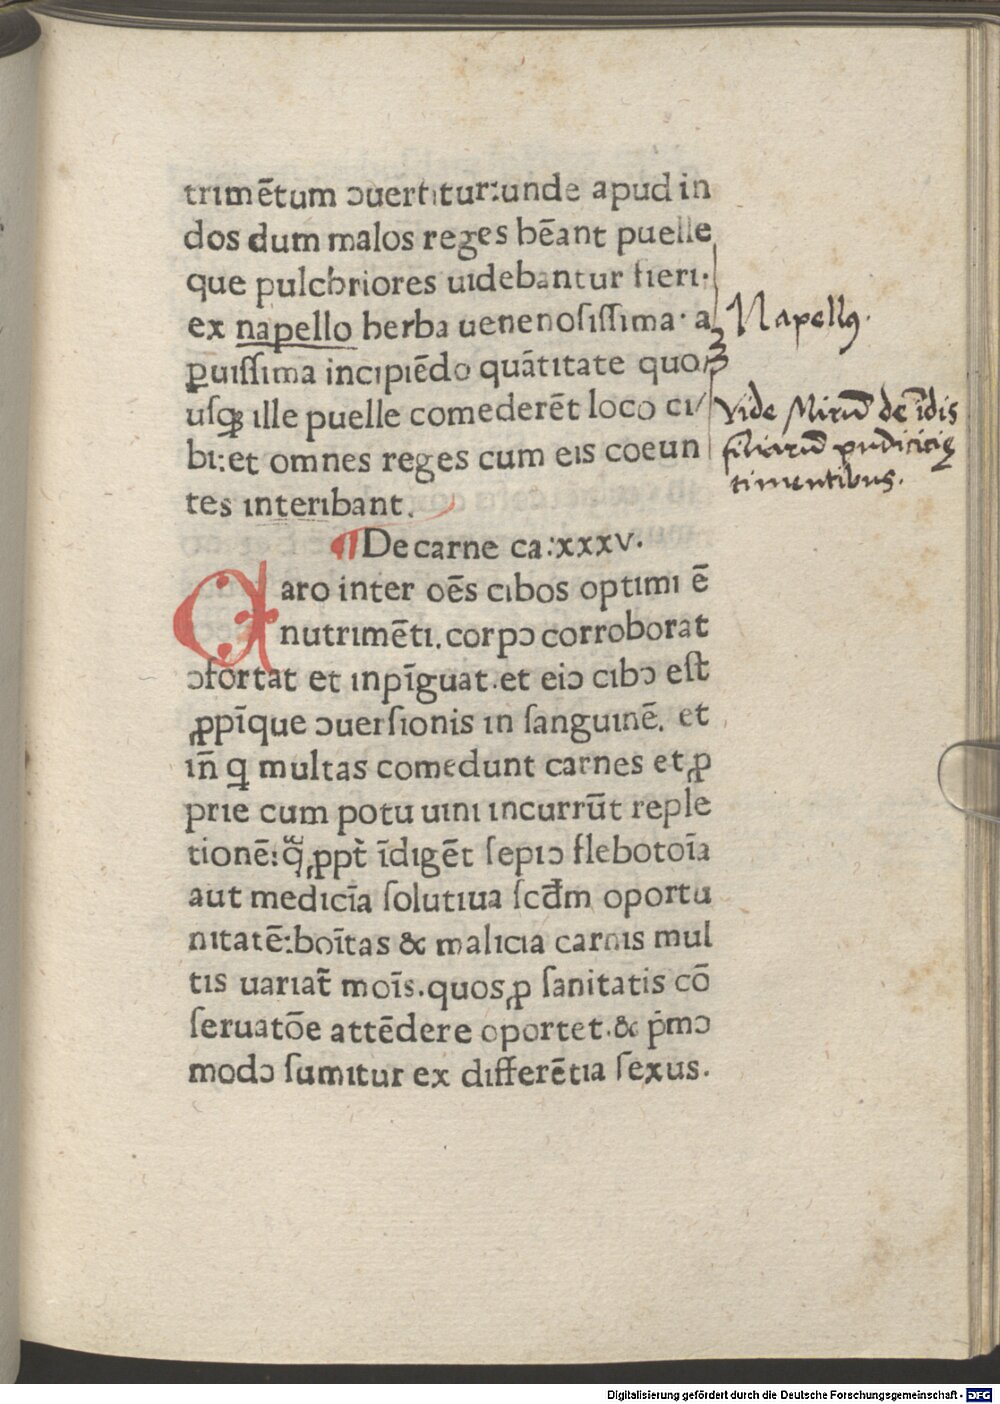 trimētum ɔuertitur:unde apud in
dos dum malos reges bēant puelle
que pulcbriores uidebantur fieri·
ex napello herba uenenosissima· a
ꝑuissima incipiēdo quātitate quo
usqꝫ ille puelle comederēt loco ci/
bi:et omnes reges cum eis coeun
tes interibant.
Napellꝰ.
Vide Mirū de īdis
filiarū pudicicię
timentibus.
¶ De carne ca:xxxv.
Caro inter oēs cibos optimi ē
nutrimēti.corpɔ corroborat
ɔfortat et inpīguat.et eiɔ cibɔ est
ꝓpīque ɔuersionis in sanguinē. et
in̄ ꝙ multas comedunt carnes et ꝓ
prie cum potu uini incurrūt reple
tionē: ꝓpt̄ īdigēt sepiɔ flebotoīa
aut medicīa solutiua scd̄m oportu
nitatē:boītas & malicia carnis mul
tis uariat̄ moīs.quos ꝓ sanitatis cō
seruatōe attēdere oportet.& p̄mɔ
modɔ sumitur ex differētia sexus.
Digitalisierung gefördert durch die Deutsche Forschungsgemeinschaft - DFG